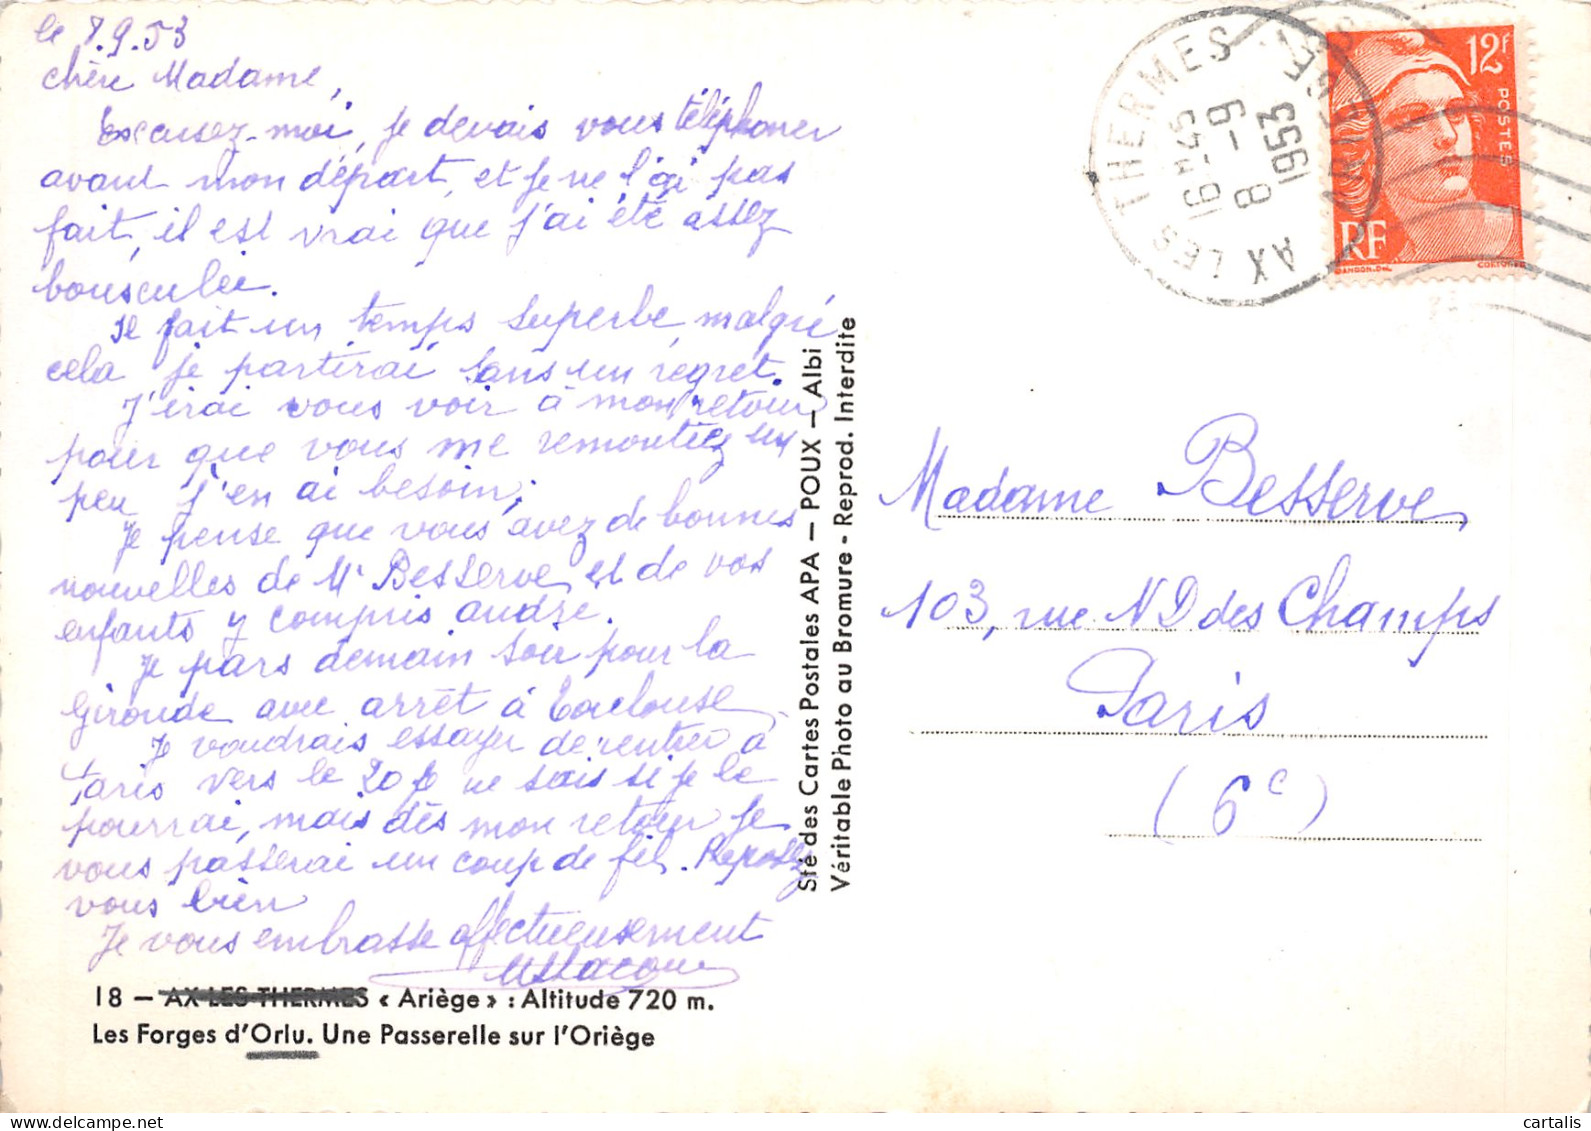 le 8.9.53
chère Madame,
Excusez-moi, je devais vous téléphoner
avant mon départ, et je ne l'ai pas
fait, il est vrai que j'ai été assez
bousculée.
Il fait un temps superbe malgré
cela je partirai sans un regret.
J'irai vous voir à mon retour
pour que vous me remontiez un
peu j'en ai besoin;
Je pense que vous avez de bonnes
nouvelles de Mr Besserve et de vos
enfants y compris andré.
Je pars demain soir pour la
Gironde avec arrêt à Toulouse
Je voudrais essayer de rentrer à
Paris vers le 20 je ne sais si je le
pourrai, mais dès mon retour je
vous passerai un coup de fil. Reposez
vous bien
Je vous embrasse affectueusement
18 – AX-LES-THERMES « Ariège » : Altitude 720 m.
Les Forges d'Orlu. Une Passerelle sur l'Oriège
Sté des Cartes Postales APA – POUX – Albi
Véritable Photo au Bromure - Reprod. Interdite
AX LES THERMES
16H45
8 - 9
1953
12F
POSTES
RF
Madame Besserve
103, rue N D des Champs
Paris
(6e)
cartalis
delcampe.net